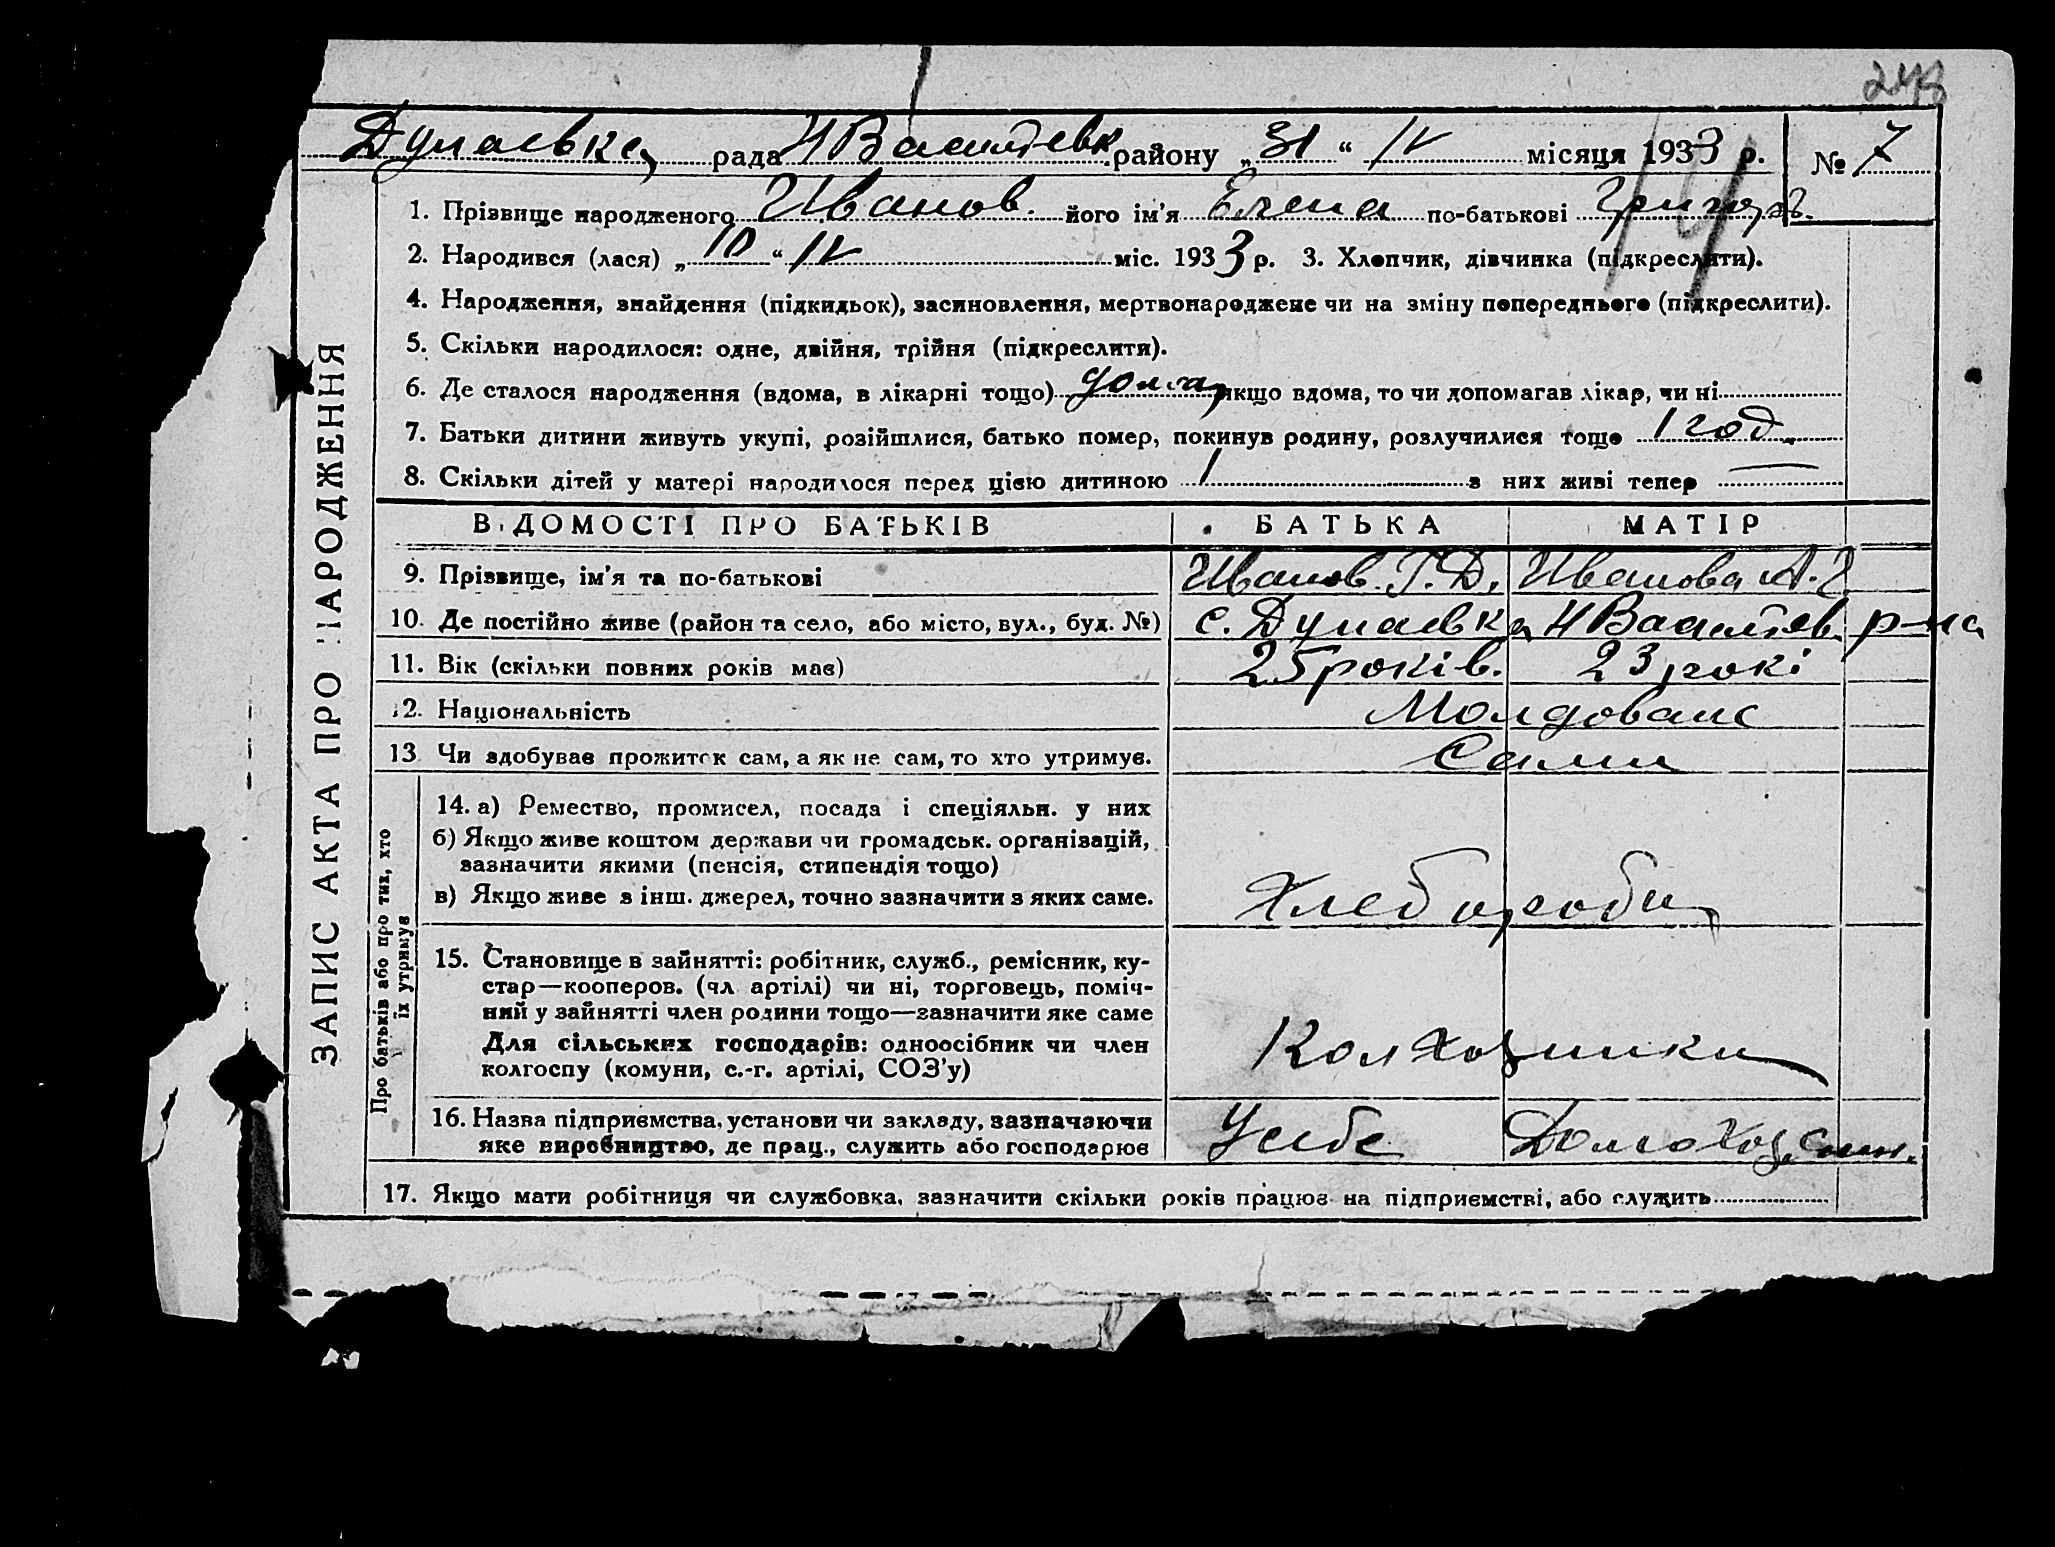 248
Дунаевка рада Н Васильевк. району „31“ IV місяця 1933 р. № 7
14
1. Прізвище народженого Иванов. його ім’я Елена по-батькові Григор.
2. Народився (лася) „10“ IV міс. 1933 р. 3. Хлопчик, дівчинка (підкреслити).
4. Народження, знайдення (підкидьок), засиновлення, мертвонароджене чи на зміну попереднього (підкреслити).
5. Скільки народилося: одне, двійня, трійня (підкреслити).
6. Де сталося народження (вдома, в лікарні тощо) дома якщо вдома, то чи допомагав лікар, чи ні
7. Батьки дитини живуть укупі, розійшлися, батько помер, покинув родину, розлучилися тоще 1 год
8. Скільки дітей у матері народилося перед цією дитиною 1 з них живі тепер —
ЗАПИС АКТА ПРО НАРОДЖЕННЯ
ВІДОМОСТІ ПРО БАТЬКІВ БАТЬКА МАТІР
9. Прізвище, ім’я та по-батькові Иванов Г. Д. Иванова А. Г
10. Де постійно живе (район та село, або місто, вул., буд. №) с. Дунаевка Н Васильев. р-на
11. Вік (скільки повних років має) 25 років. 23 рокі
12. Національність Молдоване
13 Чи здобував прожиток сам, а як не сам, то хто утримує. Сами
Про батьків або про тих, хто
їх утримує
14. а) Ремество, промисел, посада і спеціяльн. у них
б) Якщо живе коштом держави чи громадськ. організацій,
зазначити якими (пенсія, стипендія тощо)
в) Якщо живе з інш. джерел, точно зазначити з яких саме. Хлебороби
15. Становище в зайнятті: робітник, служб., ремісник, ку-
стар—кооперов. (чл артілі) чи ні, торговець, поміч-
ний у зайнятті член родини тощо—зазначити яке саме
Для сільських господарів: одноосібник чи член
колгоспу (комуни, с.-г. артілі, СОЗ’у) Колхозники
16. Назва підприємства, установи чи закладу, зазначаючи
яке виробництво, де прац., служить або господарює
17. Якщо мати робітниця чи службовка, зазначити скільки років працює на підприємстві, або служить